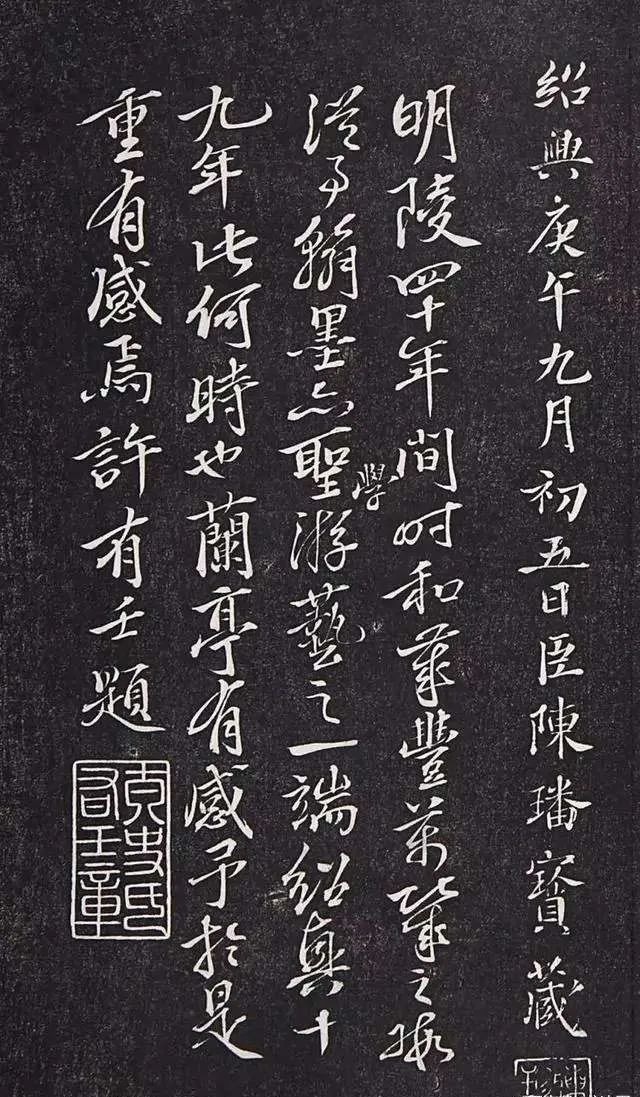 紹興庚午九月初五日臣陳璠寶藏
明陵四十年間時和歲豐萬幾之暇
從事翰墨亦聖學游藝之一端紹興十
九年此何時也蘭亭有感予於是
重有感焉許有壬題